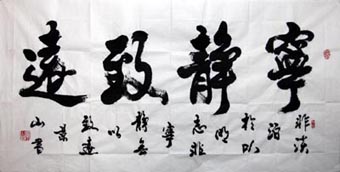 寧靜致遠
非淡
泊
以
明
志非
寧
靜無
以
致遠
景
山書